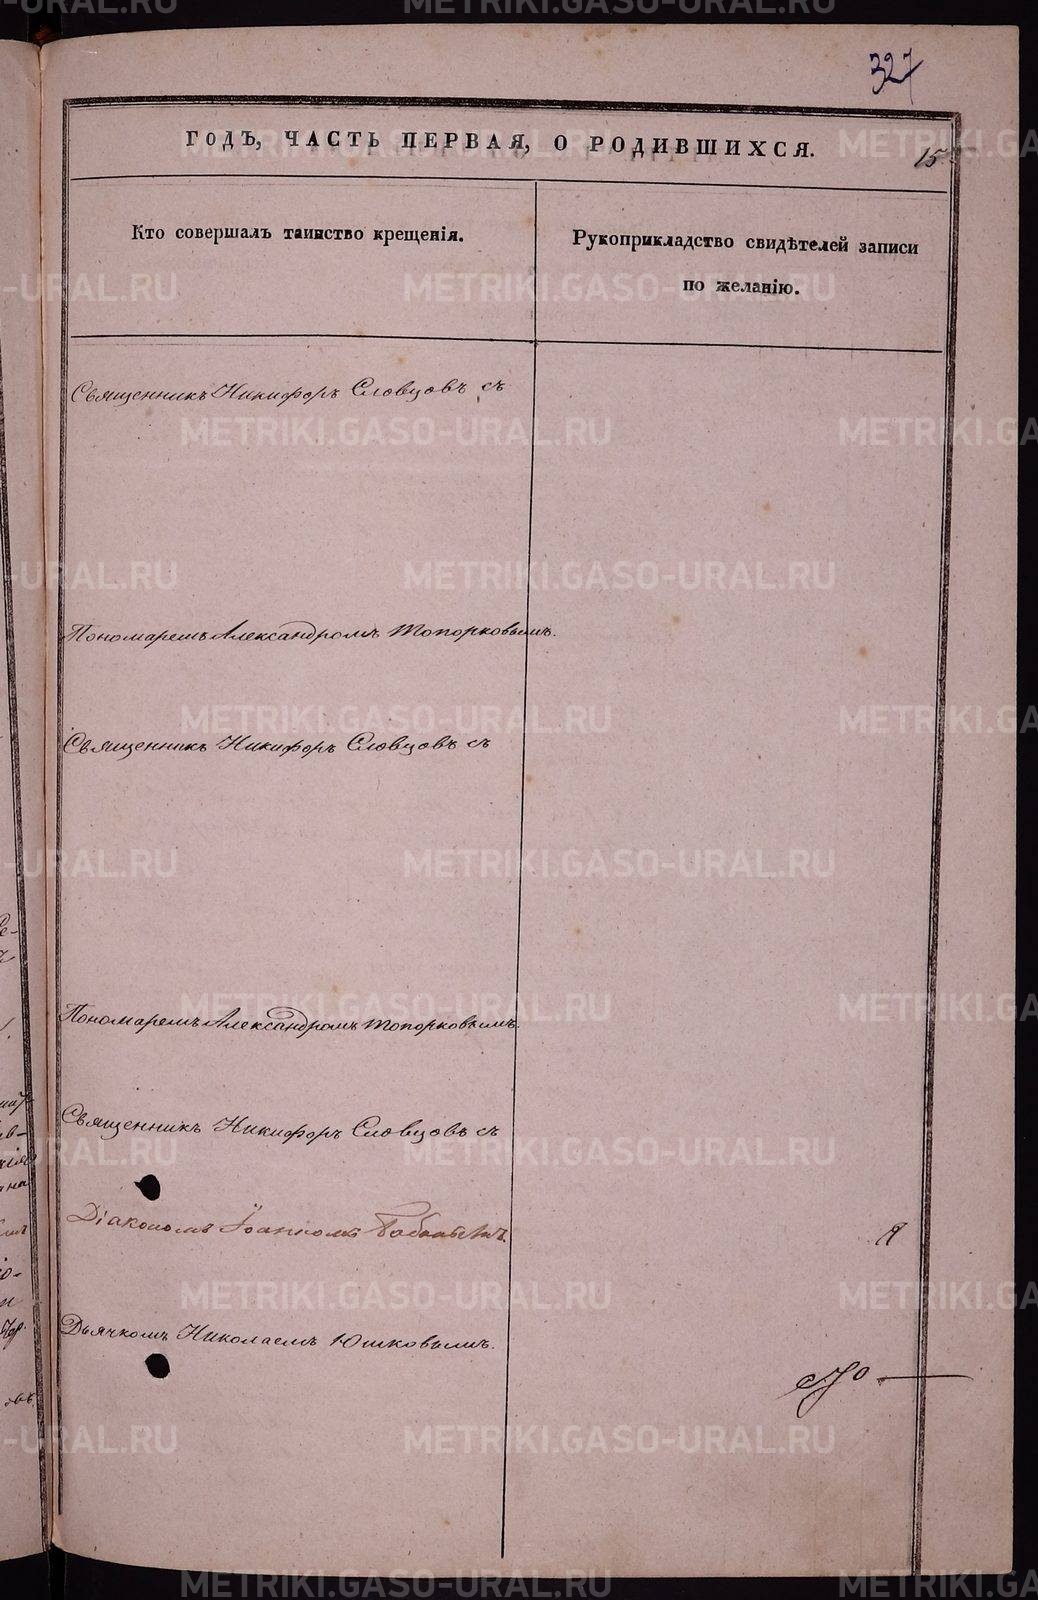 327
ГОДЪ, ЧАСТЬ ПЕРВАЯ, О РОДИВШИХСЯ.
15
Кто совершалъ таинство крещенія.
Рукоприкладство свидѣтелей записи
по желанію.
Священникъ Никифоръ Словцовъ съ
Пономаремъ Александромъ Топорковымъ.
Священникъ Никифоръ Словцовъ съ
Пономаремъ Александромъ Топорковымъ.
Священникъ Никифоръ Словцовъ съ
Діакономъ Іоанномъ
Дьячкомъ Николаемъ Юшковымъ.
METRIKI.GASO-URAL.RU